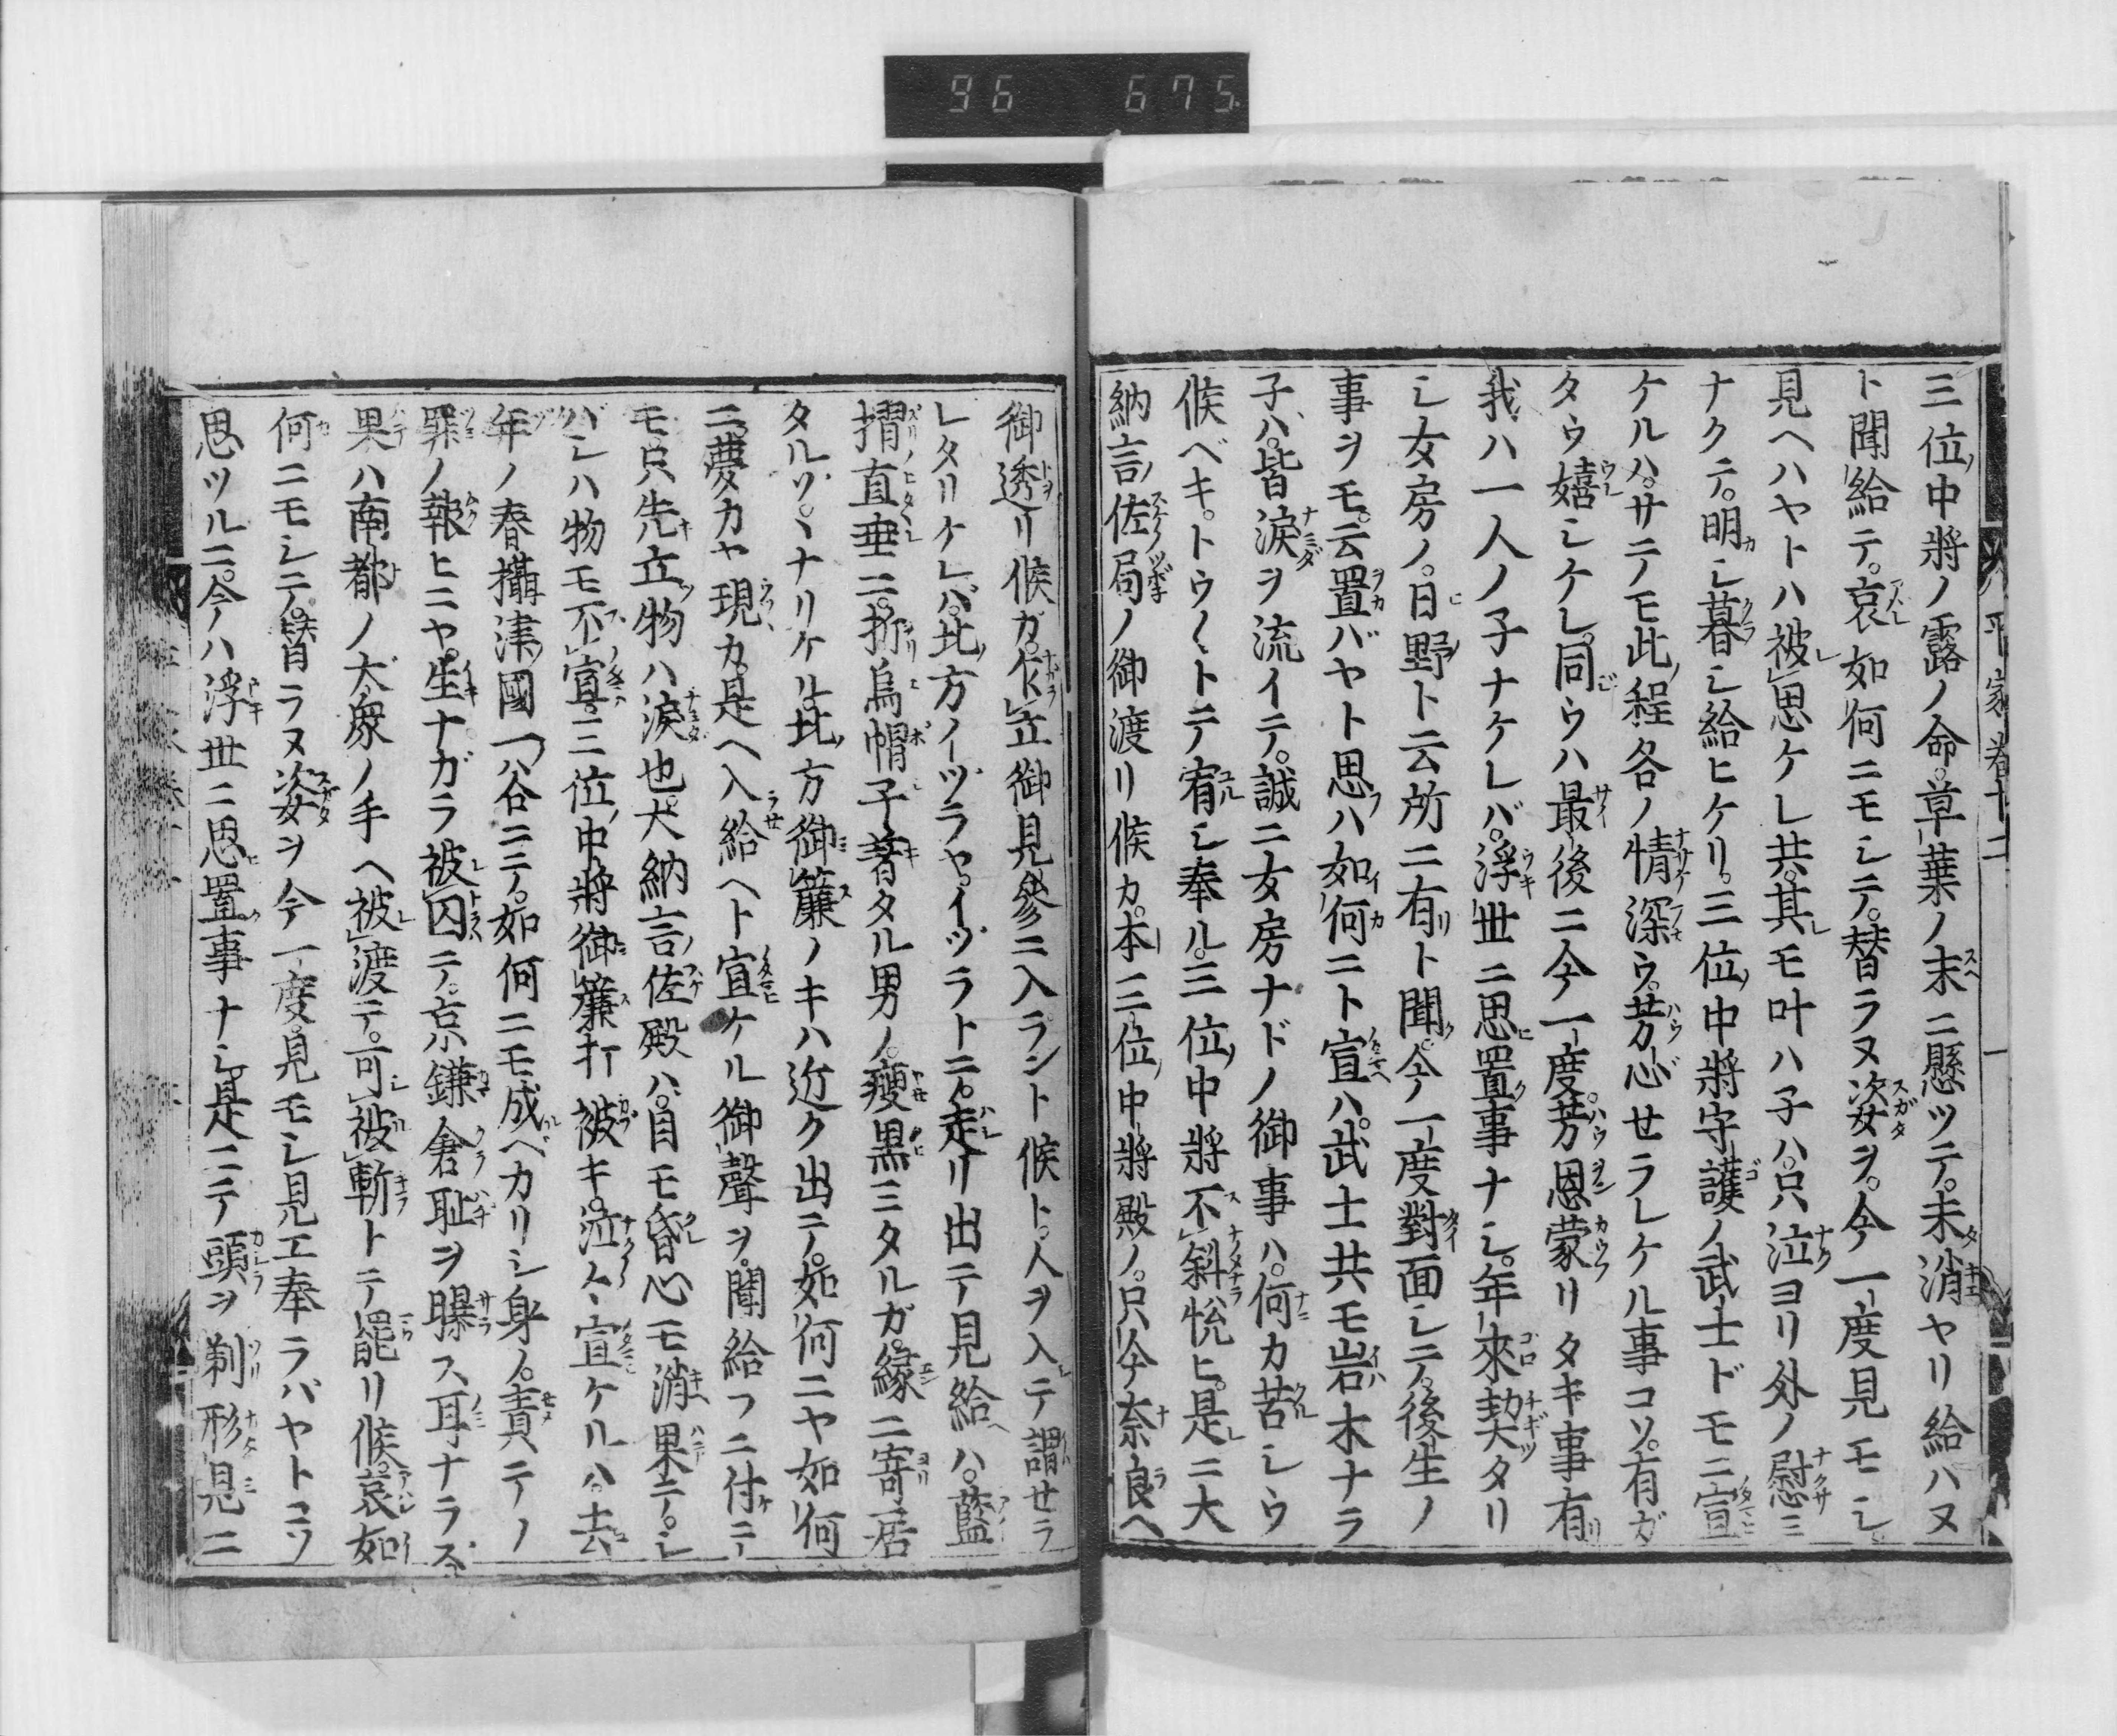 96 675
平家巻十二
三位中將ノ露ノ命。草葉ノ末ニ懸ツテ。未消ヤリ給ハヌ
ト聞給テ。哀如何ニモシテ。替ラヌ姿ヲ。今一度見モシ
見ヘハヤトハ被思ケレ共。其モ叶ハ子ハ。只泣ヨリ外ノ慰ミ
ナクテ。明シ暮シ給ヒケリ。三位中將守護ノ武士ドモニ宣
ケルハ。サテモ此程各ノ情深ウ。芳心せラレケル事コソ。有ガ
タウ嬉シケレ。同ウハ最後ニ今一度芳恩蒙リタキ事有
我ハ一人ノ子ナケレバ。浮世ニ思置事ナシ。年來契タリ
シ女房ノ。日野ト云所ニ有ト聞。今一度對面シテ。後生ノ
事ヲモ。云置バヤト思ハ如何ニト宣ハ。武士共モ岩木ナラ
子ハ。皆淚ヲ流イテ。誠ニ女房ナドノ御事ハ。何カ苦シウ
候ベキ。トウ〱トテ宥シ奉ル。三位中將不斜悅ヒ。是ニ大
納言佐局ノ御渡リ候カ。本三位中將殿ノ。只今奈良ヘ
御透リ候ガ。乍立御見參ニ入ラント候ト。人ヲ入テ謂せラ
レタリケレバ。此方イヅラヤ。イヅラトテ。走リ出テ見給ハ。藍
摺直垂ニ。折烏帽子著タル男ノ。瘦黒ミタルガ。緣ニ寄居
タルゾ。ソナリケル。此方御簾ノキハ近ク出テ。如何ニヤ如何
ニ。夢カヤ現カ。是ヘ入給ヘト宣ケル御聲ヲ。聞給フニ付テ
モ。只先立物ハ淚也。大納言佐殿ハ。目モ昏心モ消果テ。シ
バシハ物モ不宣。三位中將御簾打被キ。泣〻宣ケルハ。去
年ノ春攝津國一谷ニテ。如何ニモ成ベカリシ身ノ。責テノ
罪ノ報ヒニヤ。生ナガラ被囚テ。京鎌倉恥ヲ曝ス耳ナラズ
果ハ南都ノ大衆ノ手ヘ被渡テ。可被斬トテ罷リ候。哀如
何ニモシテ。替ラヌ姿ヲ今一度。見モシ見エ奉ラバヤトコソ
思ツルニ。今ハ浮世ニ思置事ナシ。是ニテ頭ヲ剃形見ニ